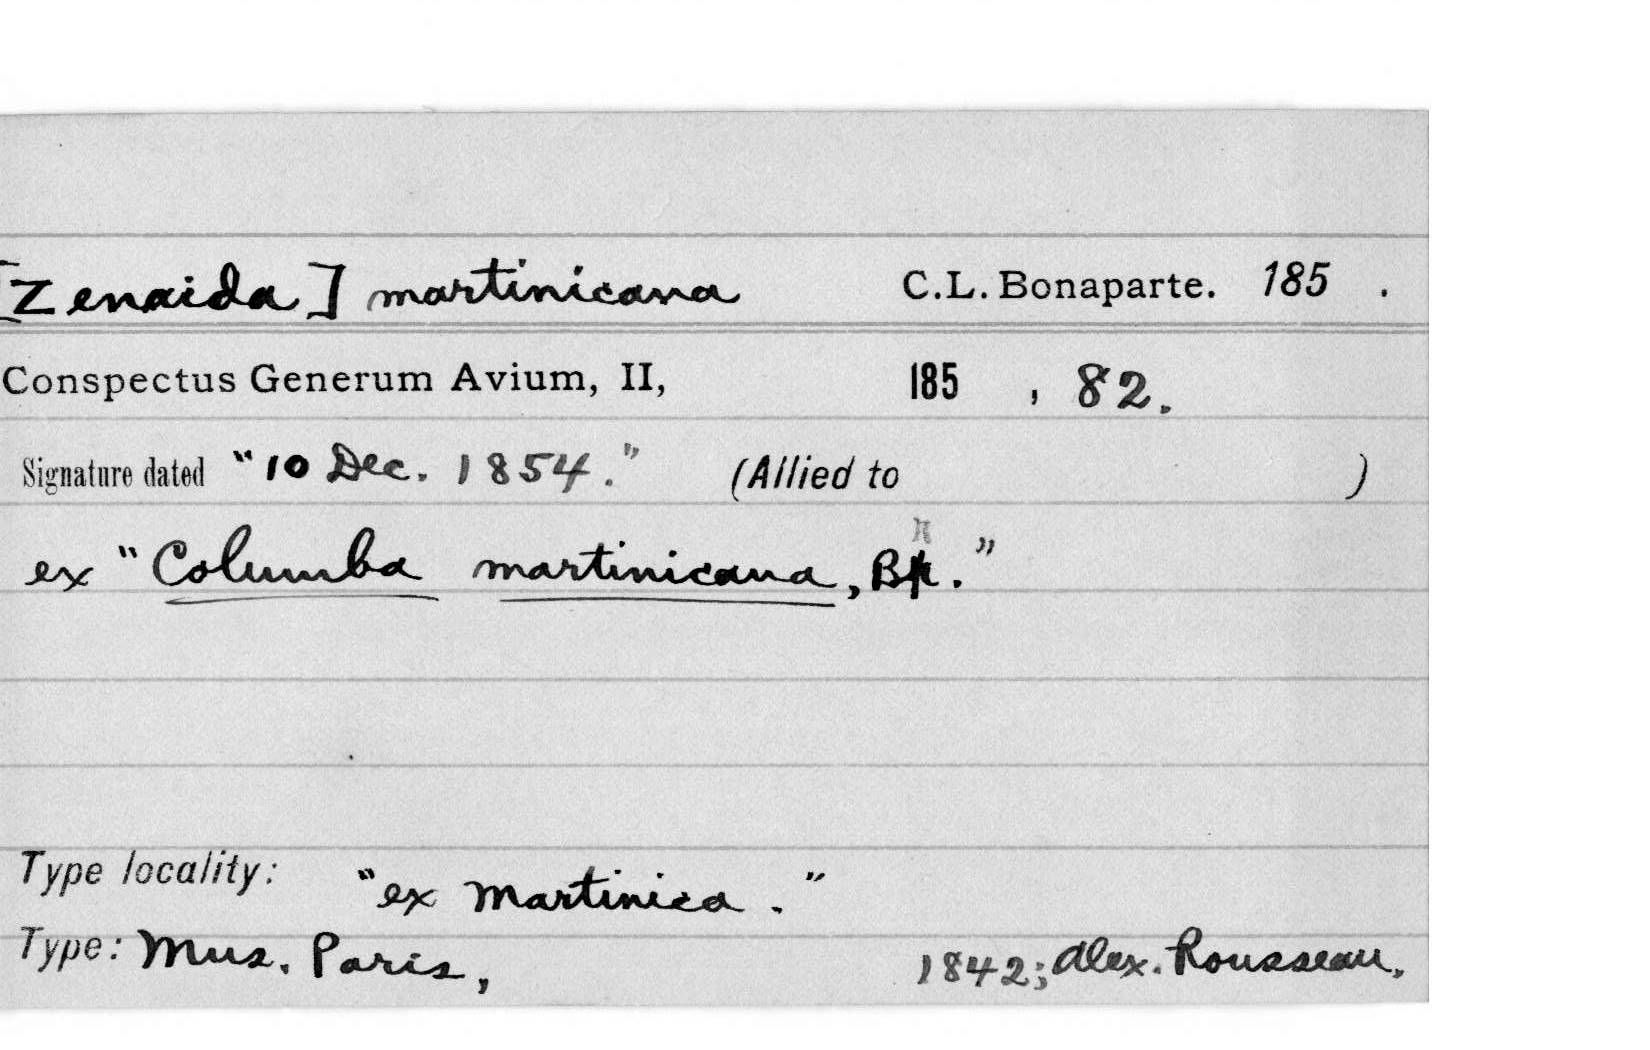 [Zenaida] martinicana C.L. Bonaparte. 185 .
Conspectus Generum Avium, II, 185 , 82.
Signature dated "10 Dec. 1854." (Allied to )
ex "Columba martinicana, Bp."
Type locality: "ex Martinica."
Type: Mus. Paris, 1842; Alex. Rousseau,